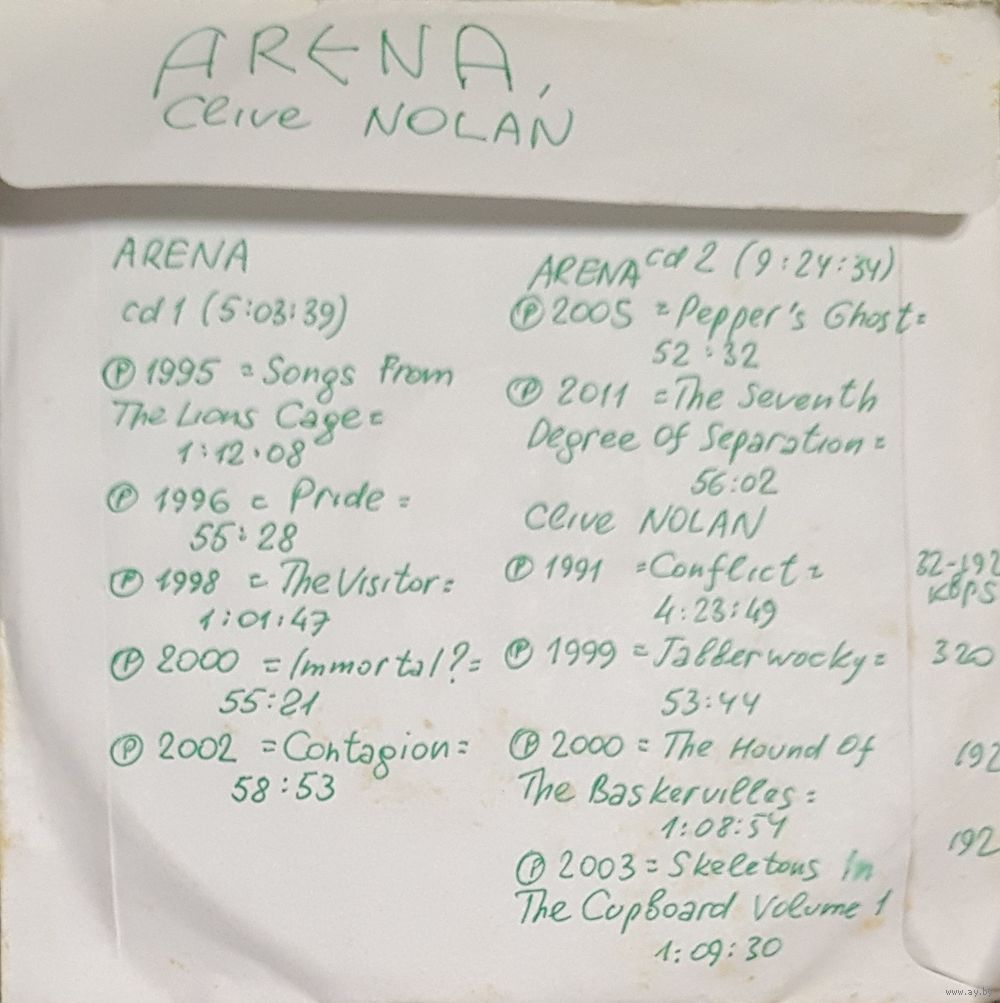 ARENA,
Clive NOLAN
ARENA
cd 1 (5:03:39)
Ⓟ 1995 = Songs From
The Lions Cage =
1:12:08
Ⓟ 1996 = Pride =
55:28
Ⓟ 1998 = The Visitor =
1:01:47
Ⓟ 2000 = Immortal? =
55:21
Ⓟ 2002 = Contagion =
58:53
ARENA cd 2 (9:24:34)
Ⓟ 2005 = Pepper's Ghost =
52:32
Ⓟ 2011 = The Seventh
Degree Of Separation =
56:02
Clive NOLAN
Ⓟ 1991 = Conflict =
4:23:49
32-192
KBPS
Ⓟ 1999 = Jabberwocky =
320
53:44
Ⓟ 2000 = The Hound Of
192
The Baskervilles =
1:08:54
Ⓟ 2003 = Skeletons In
192
The Cupboard Volume 1
1:09:30
www.ay.by